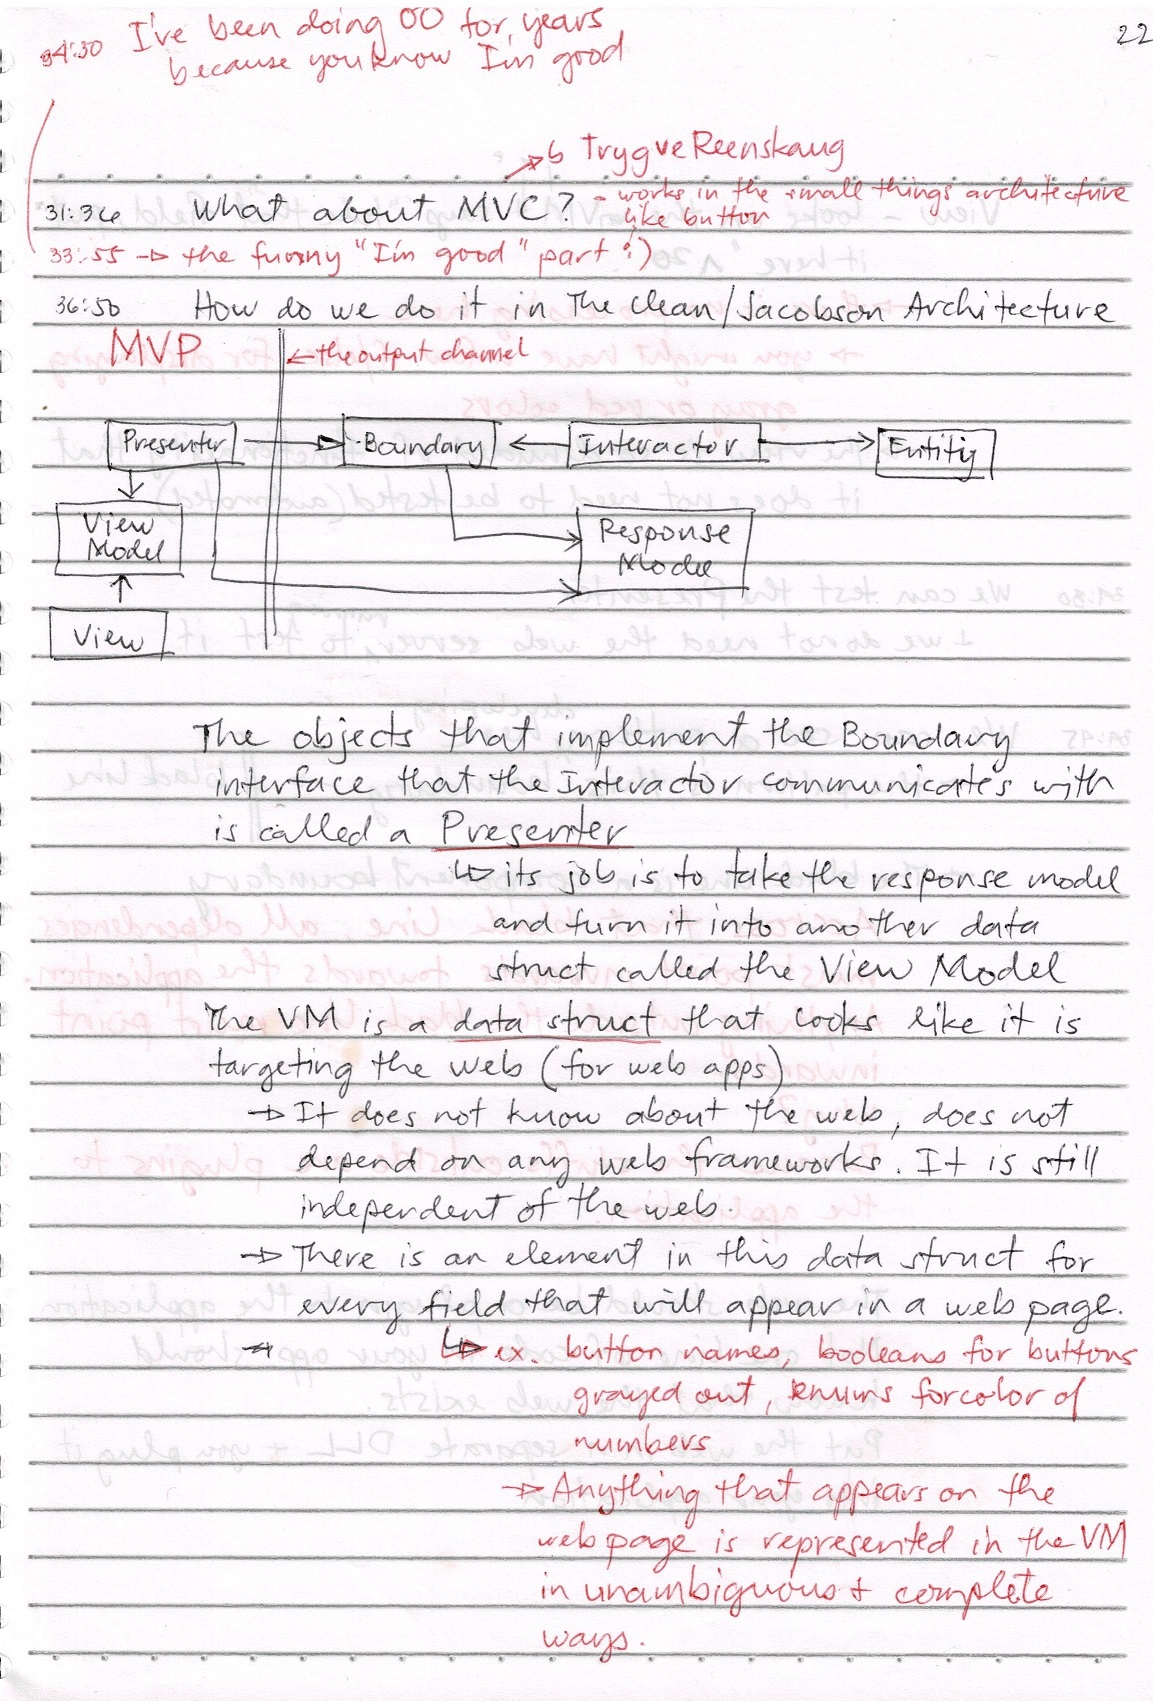 34:30 I've been doing OO for, years
because you know I'm good
22
→ Trygve Reenskaug
31:36 What about MVC? - works in the small things architecture
like button
33:55 → the funny "I'm good" part :)
36:50 How do we do it in The Clean/Jacobson Architecture
MVP ← the output channel
Presenter Boundary Interactor Entity
View
Model
Response
Model
View
The objects that implement the Boundary
interface that the Interactor communicates with
is called a Presenter
↳ its job is to take the response model
and turn it into another data
struct called the View Model
The VM is a data struct that looks like it is
targeting the web (for web apps)
→ It does not know about the web, does not
depend on any web frameworks. It is still
independent of the web.
→ There is an element in this data struct for
every field that will appear in a web page.
↳ ex. button names, booleans for buttons
grayed out, enums for color of
numbers
→ Anything that appears on the
web page is represented in the VM
in unambiguous + complete
ways.